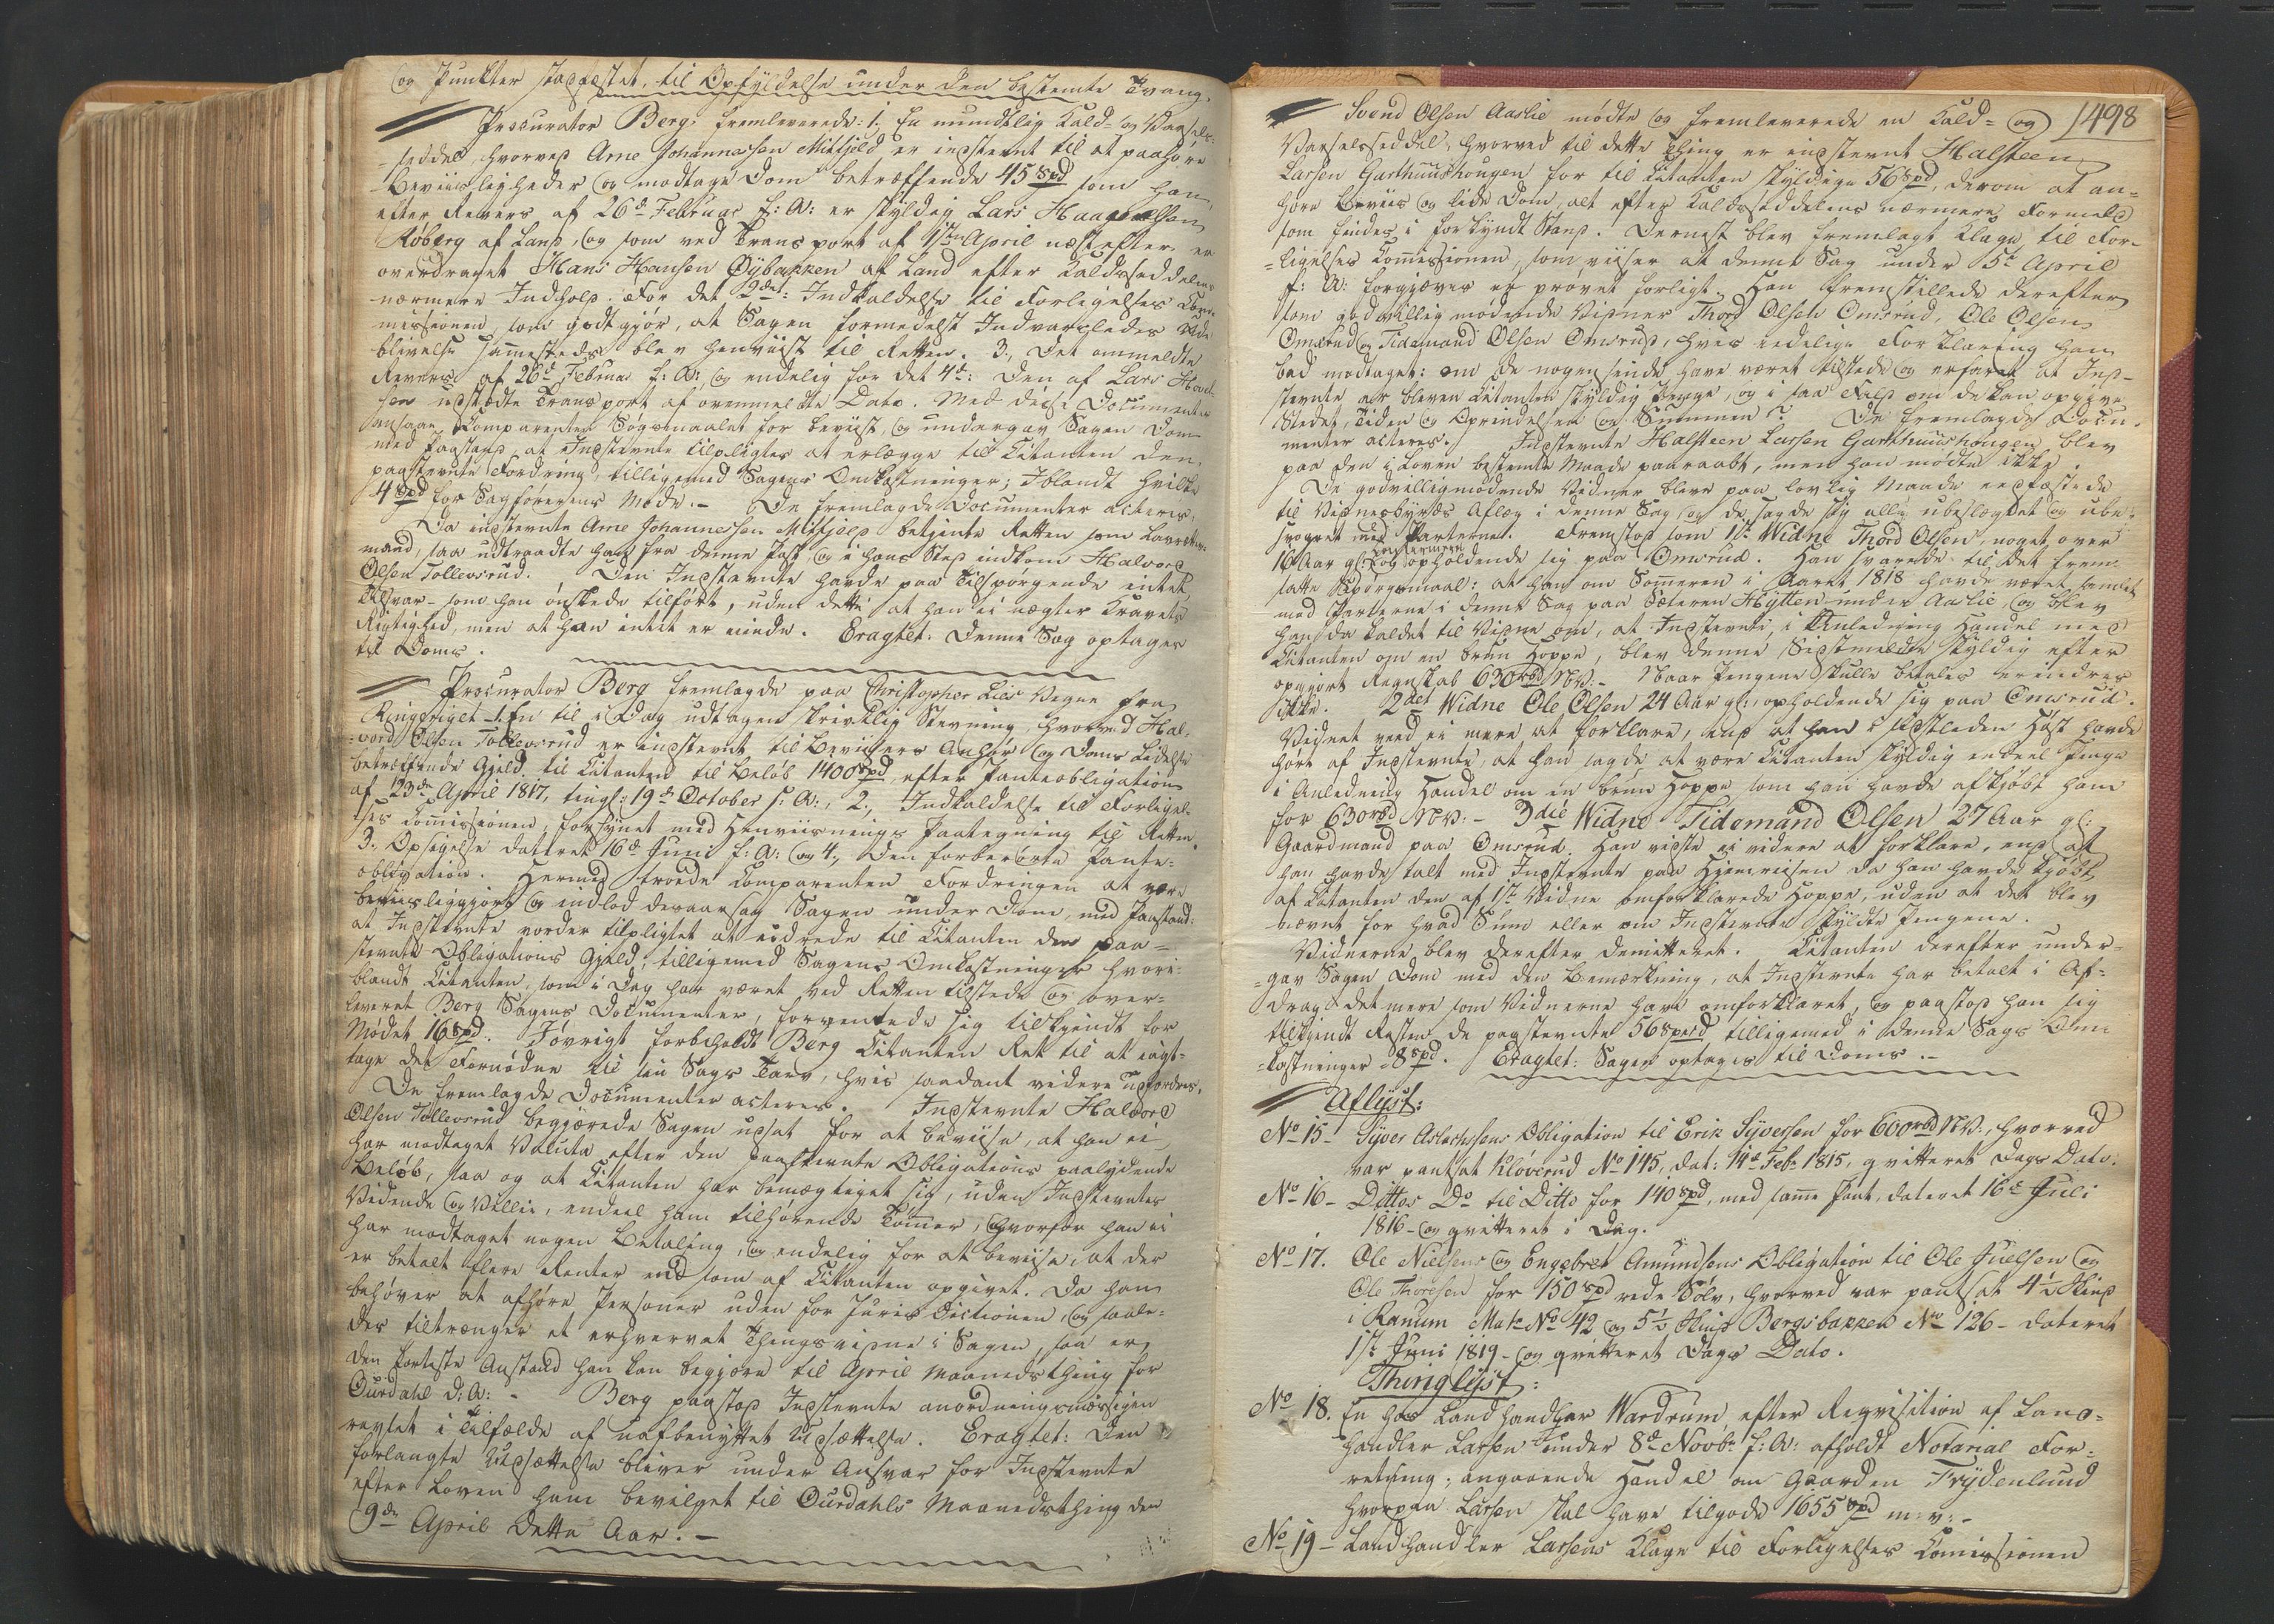 og Punkter stadfæstet, til Opfyldelse under den bestemte Tvang.
Procurator Berg fremleverede: 1. En mundtlig Kald- og Varsels-
seddel, hvorved Arne Johannessen Mitfjeld er indstevnt til at paahøre
Beviisligheder og modtage Dom betræffende 45 Spd som han,
efter Revers af 26d Februar f: A: er skyldig Lars Haagensen
Roberg af Land, og som ved Transport af 1ste April næstefter er
overdraget Hans Hansen Øybakken af Land efter Kaldsseddelens
nærmere Indhold. For det 2det: Indkaldelse til Forligelses Com-
missionen, som godtgjør, at Sagen formedelst Indvarsledes Ude
blivelse sammesteds blev henviist til Retten. 3., Det ommeldte
Revers af 26d Februar f: A:, og endelig for det 4d: den af Lars
udstædte Transport af ovenmeldte Dato. Med disse Documenter
ansaae Comparenten Søgsmaalet for beviist, og undergav Sagen Dom
med Paastand at Indstevnte tilpligtes at erlægge til Citanten den
paastevnte Fordring, tilligemed Sagens Omkostninger; Iblandt hvilke
4 Spd for Sagførerens Møde. - De fremlagde Documenter acteres.
Da indstevnte Arne Johannessen Mitfjeld betjente Retten som Lavrettes-
mand, saa udtraadte han fra denne Post og i hans Sted indkom Halvord
Olsen Tollevsrud. Den Indstevnte havde paa Tilspørgende intet
Tilsvar som han ønskede tilført, uden dette at han ei nægter Kravets
Rigtighed, men at han intet er eiende. Eragtet: Denne Sag optages
til Doms.
Procurator Berg fremlagde paa Christopher Lies Vegne fra
Ringeriget - 1. En til i Dag udtagen skrivtlig Stevning, hvorved Hal-
vord Olsen Tollevsrud er indstevnt til Beviisers Anhør og Doms Lidelse
betræffende Gjeld til Citanten til Beløb 1400 Spd efter Panteobligation
af 23de April 1817, tingl: 19d October s: A:, 2., Indkaldelse til Forligel-
ses Commissionen, forsynet med Henviisnings Paategning til Retten.
3., Opsigelse dateret 16d Juni f: A: og 4., Den forberørte Pante-
obligation. Hermed troede Comparenten Fordringen at være
beviisliggjort og indlod deraarsag Sagen under Dom, med Paastand:
at Indstevnte vorder tilpligtet at udrede til Citanten den paa-
stevnte Obligations Gjeld, tilligemed Sagens Omkostninger hvori-
blandt Citanten, som i Dag har været ved Retten tilstede og over-
leveret Berg Sagens Documenter, forventede sig tilkjendt for
Mødet 16 Spd. Iøvrigt forbeholdt Berg Citanten Ret til at iagt-
tage det Fornødne til sin Sags Tarv, hvis saadant videre udfordres.
De fremlagde Documenter acteres. Indstevnte Halvord
Olsen Tollevsrud begjærede Sagen udsat for at beviise, at han ei
har modtaget Valuta efter den paastevnte Obligations paalydende
Beløb, saa og at Citanten har bemægtiget sig, uden Indstevntes
Vidende og Villie, endeel ham tilhørende Tømmer, hvorfor han ei
har modtaget nogen Betaling, og endelig for at beviise, at der
er betalt flere Renter end som af Citanten opgivet. Da han
behøver at afhøre Personer uden for Jurisdictionen, og saale-
des tiltrænger et erhvervet Thingsvidne i Sagen, saa er
den korteste Anstand han kan begjære til April Maanedsthing for
Ourdahl d: A: - Berg paastod Indstevnte anordningsmæssigen
revset i Tilfælde af uafbenyttet Udsættelse. Eragtet: Den
forlangte Udsættelse bliver under Ansvar for Indstevnte
efter Loven ham bevilget til Ourdahls Maanedsthing den
9de April dette Aar. -
498
Svend Olsen Aaslie mødte og fremleverede en Kald- og
Varselsseddel, hvorved til dette Thing er indstevnt Halsteen
Larsen Garthuushougen for til Citanten skyldige 56 Spd, derom at an-
høre Beviis og lide Dom, alt efter Kaldsseddelens nærmere Formeld
som findes i forkyndt Stand. Dernæst blev fremlagt Klage til For-
ligelses Commissionen, som viiser at denne Sag under 5t April
f: A: forgjæves er prøvet forligt. Han fremstillede derefter
som godvillig mødende Vidner Thord Olsen Omsrud, Ole Olsen
Omsrud og Tidemand Olsen Omsrud, hvis eedelige Forklaring han
bad modtaget: om de nogensinde have været tilstede og erfaret at Ind-
stevnte er bleven Citanten skyldig Penge, og i saa Fald om de kan opgive
Stedet, Tiden og Oprindelsen og Summen? De fremlagde Docu-
menter acteres. Indstevnte Halsteen Larsen Garthuushougen blev
paa den i Loven bestemte Maade paaraabt, men han mødte ikke.
De godvilligmødende Vidner bleve paa lovlig Maade eedfæstede
til Vidnesbyrds Aflæg i denne Sag og de sagde sig alle ubeslægtet og ube-
svogret med Parterne. Fremstod som 1st Widne Thord Olsen, noget over
16 Aar gl: confirmeret og opholdende sig paa Omsrud. Han svarede til det frem-
satte Spørgsmaal: at han om Sommeren i Aaret 1818 havde været samlet
med Parterne i denne Sag paa Sæteren Hytten under Aaslie, og blev
han da kaldet til Vidne om, at Indstevnte, i Anledning Handel med
Citanten om en bruun Hoppe, blev denne Sidstmeldte skyldig efter
opgjort Regnskab 630 rbd NV: - Naar Pengene skulle betales erindres
ikke. 2det Widne Ole Olsen 24 Aar gl:, opholdende sig paa Omsrud.
Vidnet veed ei mere at forklare, end at han i sidstleden Høst havde
hørt af Indstevnte, at han sagde at være Citanten skyldig endeel Penge
i Anledning Handel om en bruun Hoppe som han havde afkjøbt ham
for 630 rbd NV: - 3die Widne Tidemand Olsen 27 Aar gl:
Gaardmand paa Omsrud. Han vidste ei videre at forklare, end at
han havde talt med Indstevnte paa Hjemreisen da han havde kjøbt
af Citanten den af 1st Vidne omforklarede Hoppe, uden at det blev
nævnt for hvad Sum eller om Indstevnte skyldte Pengene.
Vidnerne blev derefter demitteret. Citanten derefter under-
gav Sagen Dom med den Bemærkning, at Indstevnte har betalt i Af-
drag det mere som Vidnerne have omforklaret, og paastod han sig
tilkjendt Resten de paastevnte 56 Spd tilligemed i denne Sags Om-
kostninger 8 Spd. Eragtet: Sagen optages til Doms. -
Aflyst:
No 15 - Syver Aslachsens Obligation til Erik Syversen for 600 rbd NV:, hvorved
var pantsat Kløvrud No 145, dat: 14d Feb: 1815, qvitteret Dags Dato.
No 16 - Dittos Do til Ditto for 140 Spd, med samme Pant, dateret 16d Juli
1816 - og qvitteret i Dag.
No 17. Ole Nielsens og Engebret Amundsens Obligation til Ole Juelsen og
Ole Thoresen for 150 Spd rede Sølv, hvorved var pantsat 4½ Skind
i Ranum Matr No 42 og 5½ Skind Bergsbakken No 126 - dateret
1st Juni 1819 - og qvitteret Dags Dato.
Thinglyst:
No 18. En hos Landhandler Wardrum, efter Reqvisition af Land-
handler Larsen under 8d Novbr f: A: afholdt Notarial For-
retning, angaaende Handel om Gaarden Frydenlund
hvorpaa Larsen skal have tilgode 1655 Spd m: v: -
No 19 - Landhandler Larsens Klage til Forligelses Comissionen